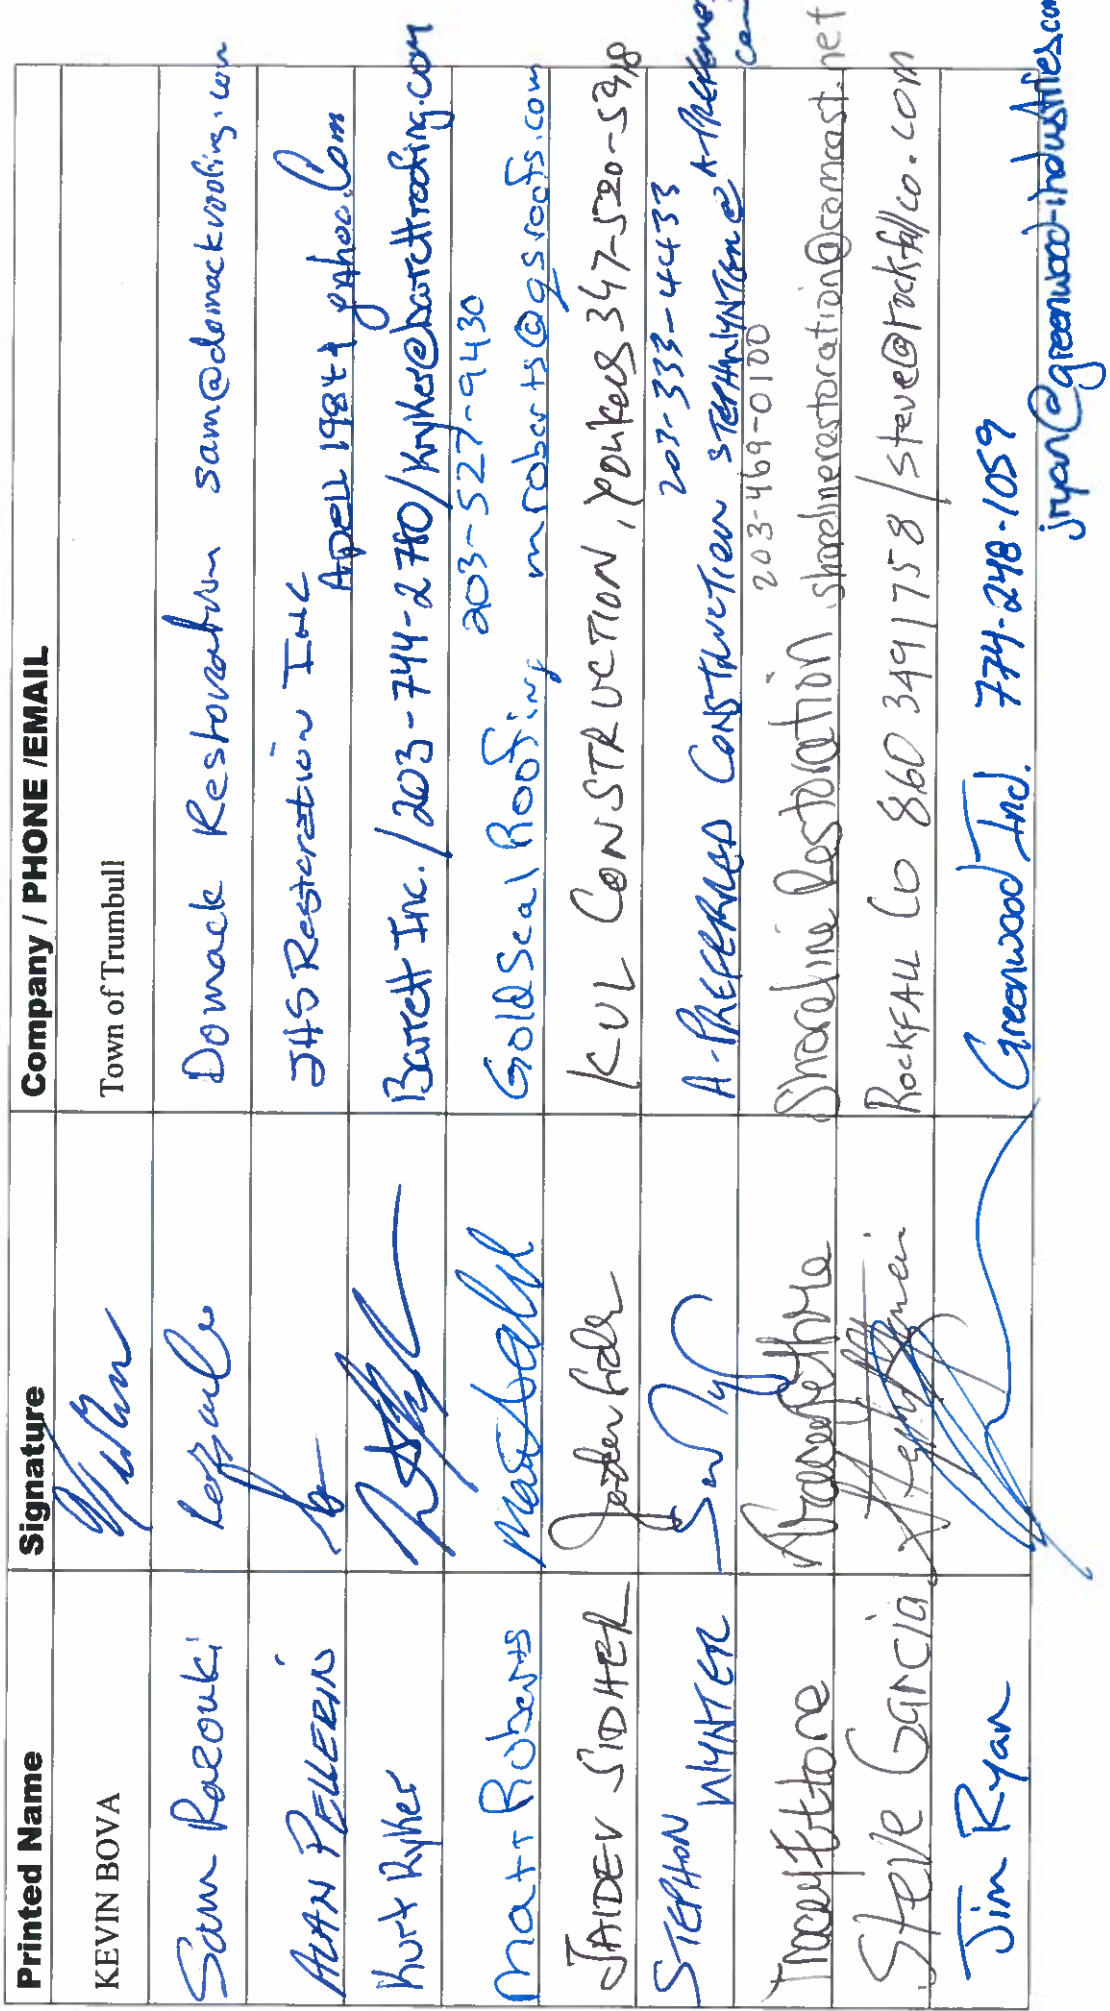 Printed Name Signature Company / PHONE /EMAIL
KEVIN BOVA Town of Trumbull
Sam Razouki Domack Restoration sam@domackroofing.com
ALAN PELLERIN JHS Restoration Inc
APELL 1984 @ yahoo.Com
Kurt Ryker Barrett Inc. / 203-744-2780/kryker@barrettroofing.com
203-527-9430
Matt Roberts Gold Seal Roofing mroberts@gsroofs.com
JAIDEV SIDHER KUL CONSTRUCTION, yonkers 347-520-5918
203-333-4433
STEPHON WYNTER A-PREFERRED CONSTRUCTION STEPHWYNTER@A-PREFERRED
com
203-469-0100
Tracey Ettore Shoreline Restoration shorelinerestoration@comcast.net
Steve Garcia RockFALL Co 860 3491758/steve@rockfallco.com
Jim Ryan Greenwood Ind. 774-248-1059
jryan@greenwood-industries.com